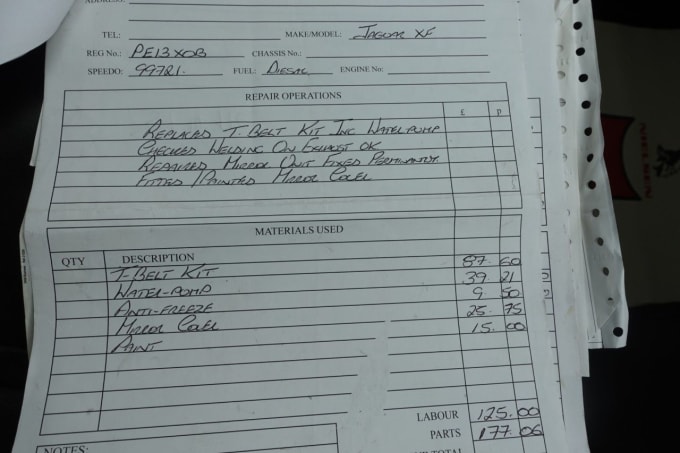 ADDRESS:
TEL: MAKE/MODEL: JAGUAR XF
REG No.: PE13XOB CHASSIS No.:
SPEEDO: 99721. FUEL: DIESEL ENGINE No:
REPAIR OPERATIONS
£ p
REPLACED T. BELT KIT INC WATERPUMP
CHECKED WELDING ON EXHAUST OK
REPAIRED MIRROR UNIT FIXED PERMINANTLY
FITTED / PAINTED MIRROR COVER
MATERIALS USED
QTY DESCRIPTION
T-BELT KIT 87 60
WATER-PUMP 39 21
ANTI-FREEZE 9 50
MIRROR COVER 25. 75
PAINT 15. 00
LABOUR 125.00
PARTS 177.06
NOTES: